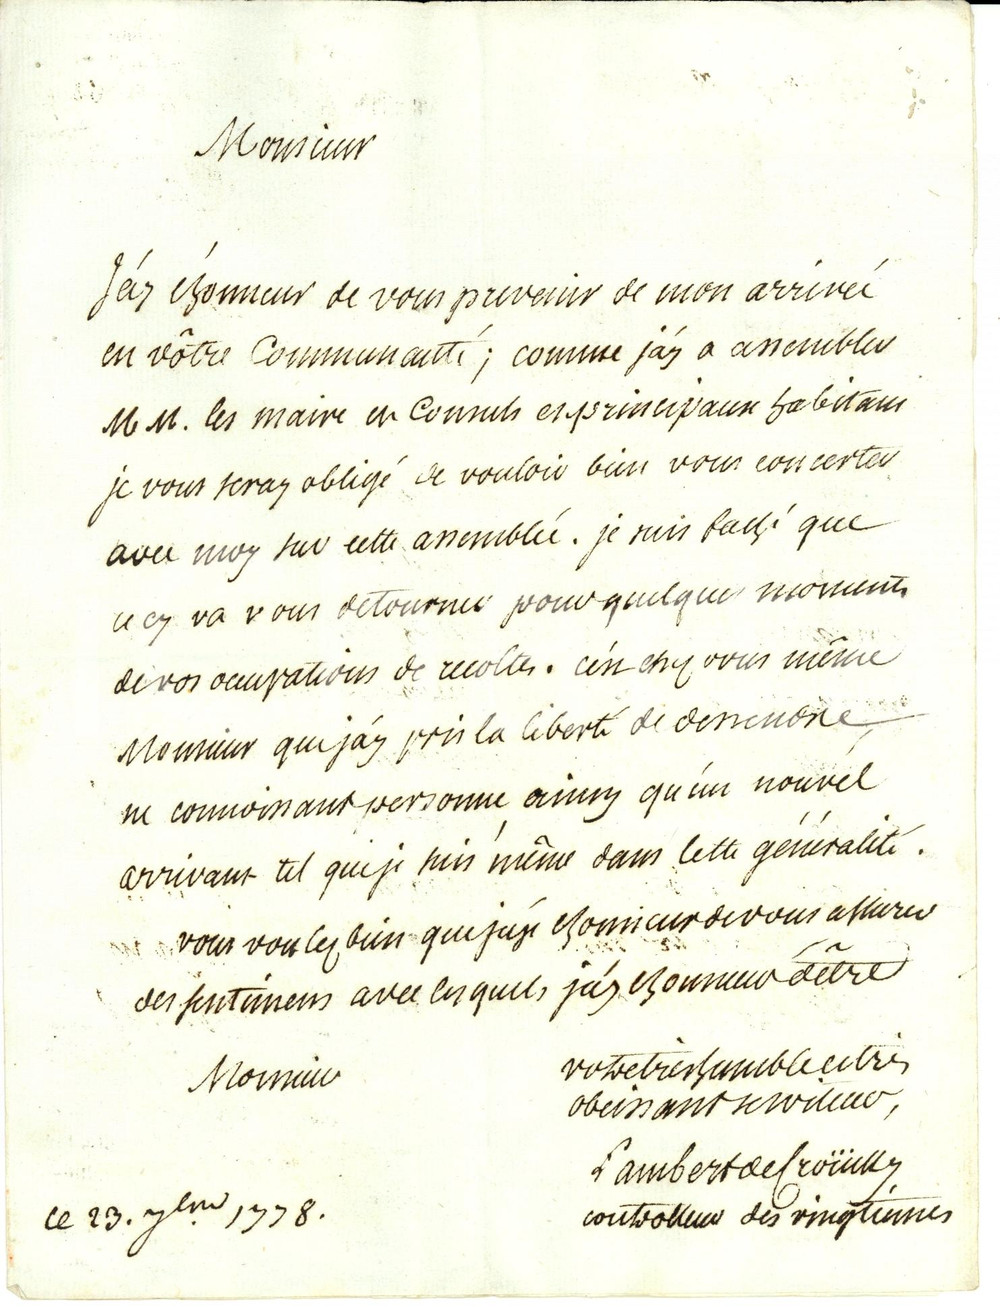 Monsieur
J'áy l'honneur de vous prevenir de mon arriveé
en vôtre Communauté; comme j'áy a assembler
MM. les maire et Consuls et principaux habitans
je vous seray obligé de vouloir bien vous concerter
avec moy sur cette assembleé. je suis faché que
cecy va vous detourner pour quelques moments
de vos occupations de recoltes. c'ést chez vous même
Monsieur que j'áy pris la liberté de dessendre,
ne connoissant personne ainsy qu'un nouvél
arrivant tel que je suis même dans cette généralité.
vous voulez bien que j'aye l'honneur de vous assurer
des sentimens avec lesquels j'áy l'honneur d'être
Monsieur
votre tres humble et tres
obeissant serviteur,
Lambert de
controlleur des vingtiemes
ce 23. 7bre 1778.